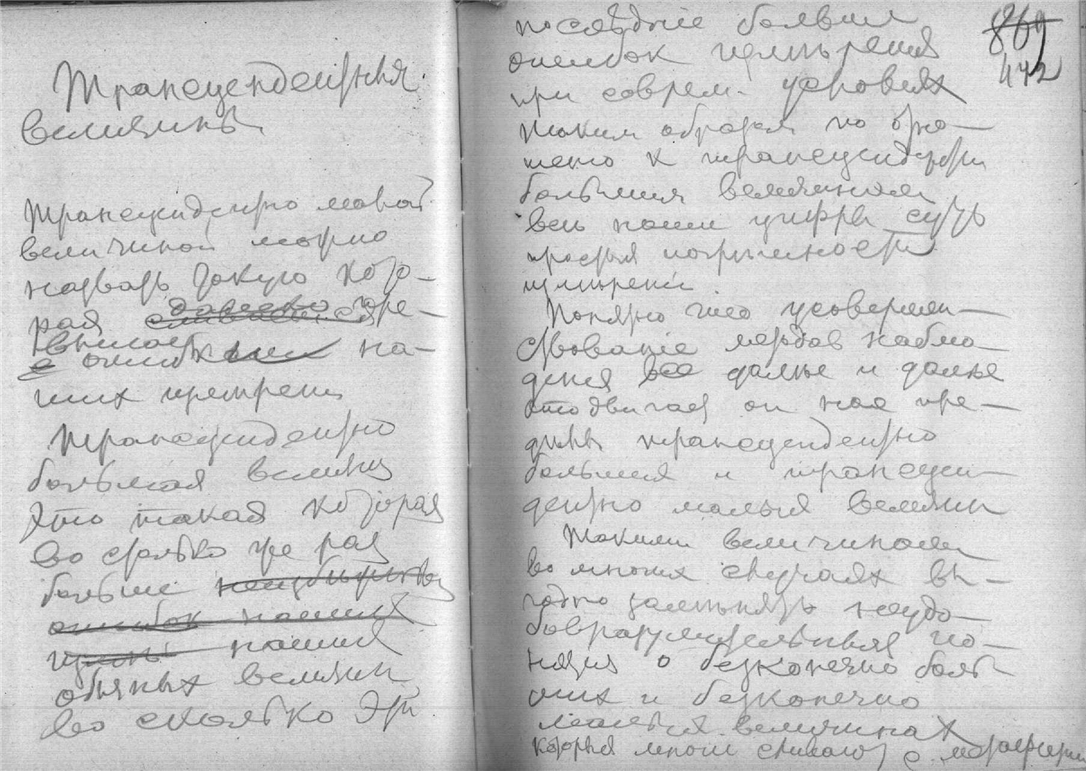 Трансцендентныя
величины
Трансцендентно малой
величиной можно
назвать такую кото-
рая
ошибки на-
ших
Трансцендентно
большая величин
Это такая которая
во столько же раз
больше
ошибок наших
наших
обычных величин
во сколько эти
869
472
последние больше
ошибок измѣрения
при соврем. условиях
Таким образом по отно-
шению к трансцендентно
большим величинам
все наши цифры суть
простыя погрѣшности
измѣрений.
Понятно что усовершен-
ствование методов наблю-
дения все далѣе и далѣе
отодвигает от нас пре-
дѣлы трансцендентно
большия и трансцен-
дентно малыя величин
Такими величинами
во многих случаях вы-
годно замѣнять неудо-
бовразумительныя по-
нятия о безконечно боль-
ших и безконечно
малых величинах
которыя многие с